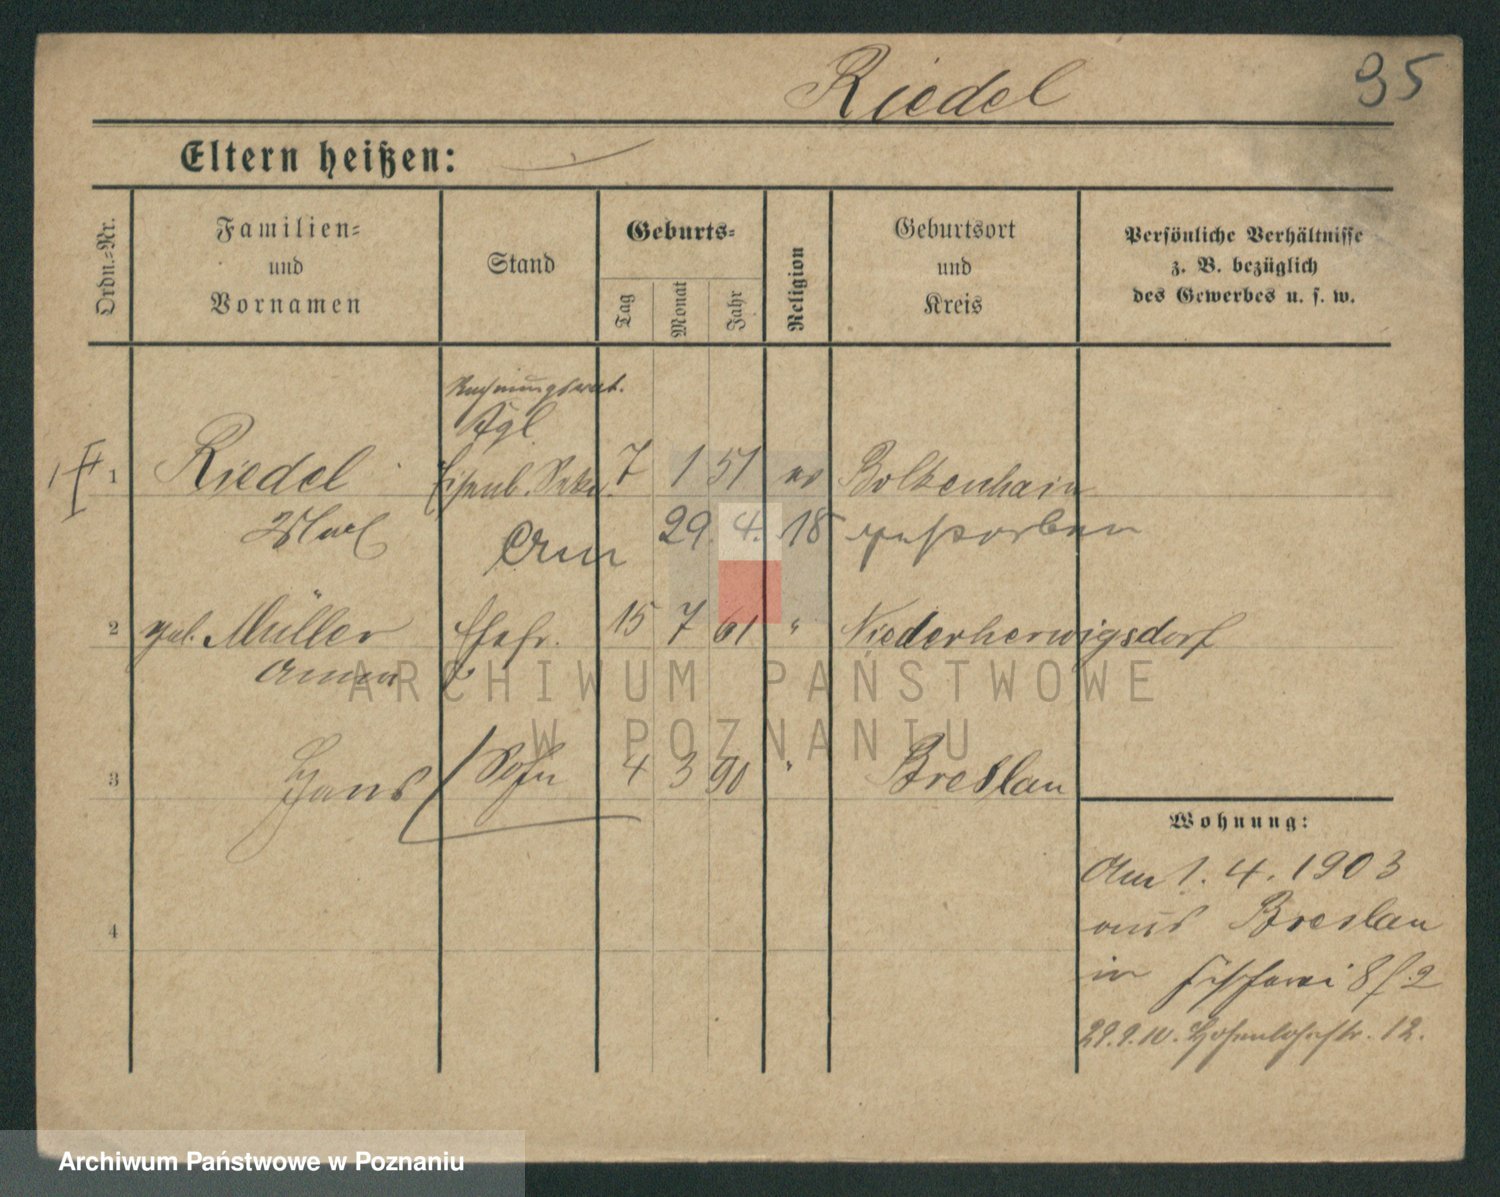 Riedel
95
Eltern heißen:
Ordn.-Nr.
Familien-
und
Vornamen
Stand
Geburts-
Tag
Monat
Jahr
Religion
Geburtsort
und
Kreis
Persönliche Verhältnisse
z. B. bezüglich
des Gewerbes u. s. w.
Rechnungsrat.
Kgl.
1 Riedel Eisenb. Sekr. 7 1 51 ev Bolkenhain
Am 29. 4. 18 gestorben
2 geb. Müller Ehefr. 15 7 61 " Niederherwigsdorf
Anna
3 Hans Sohn 4 3 90 " Breslau
4
Wohnung:
Am 1. 4. 1903
aus Breslau
in Fischerei 8 f. 2
29.9.10. Hohenlohestr. 12.
ARCHIWUM PAŃSTWOWE
W POZNANIU
Archiwum Państwowe w Poznaniu